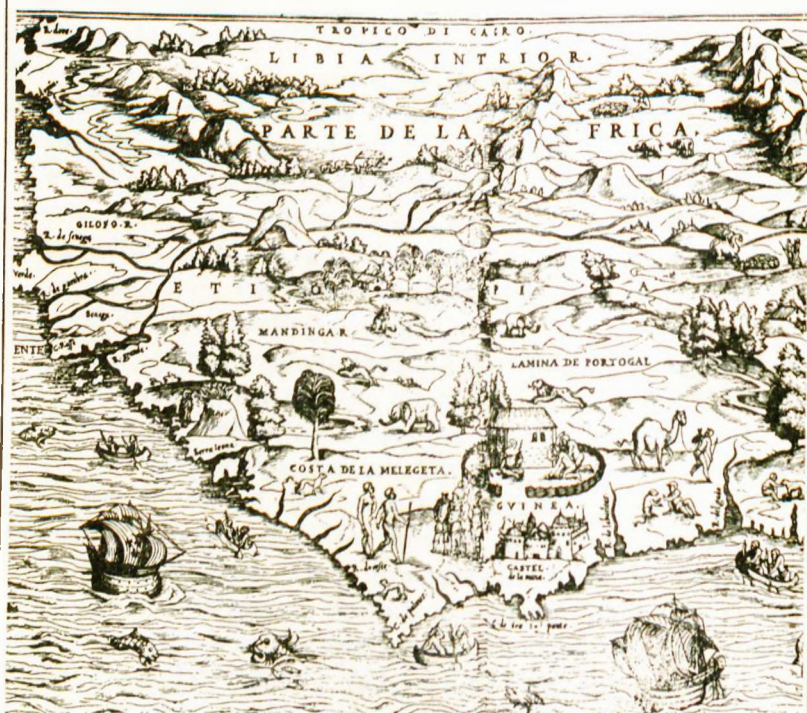 TROPICO DI CACRO.
LIBIA INTRIOR.
PARTE DE LA FRICA.
GILOFO. R.
R. de senega
Verde.
R. de gambra.
ETIOPIA
MANDINGA R.
LAMINA DE PORTOGAL
R. grande.
Serra leona
COSTA DE LA MELEGETA.
GVINEA.
CASTEL
de la mina.